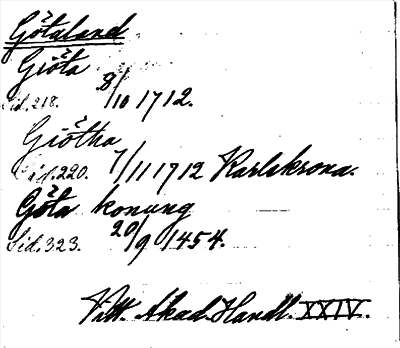 Götaland
Giöta
Sid. 218. 8/10 1712.
Giötha
Sid. 290. 7/11 1712 Karlskrona.
Göta konung
Sid. 323. 20/9 1454.
Vitt. Akad. Handl. XXIV.